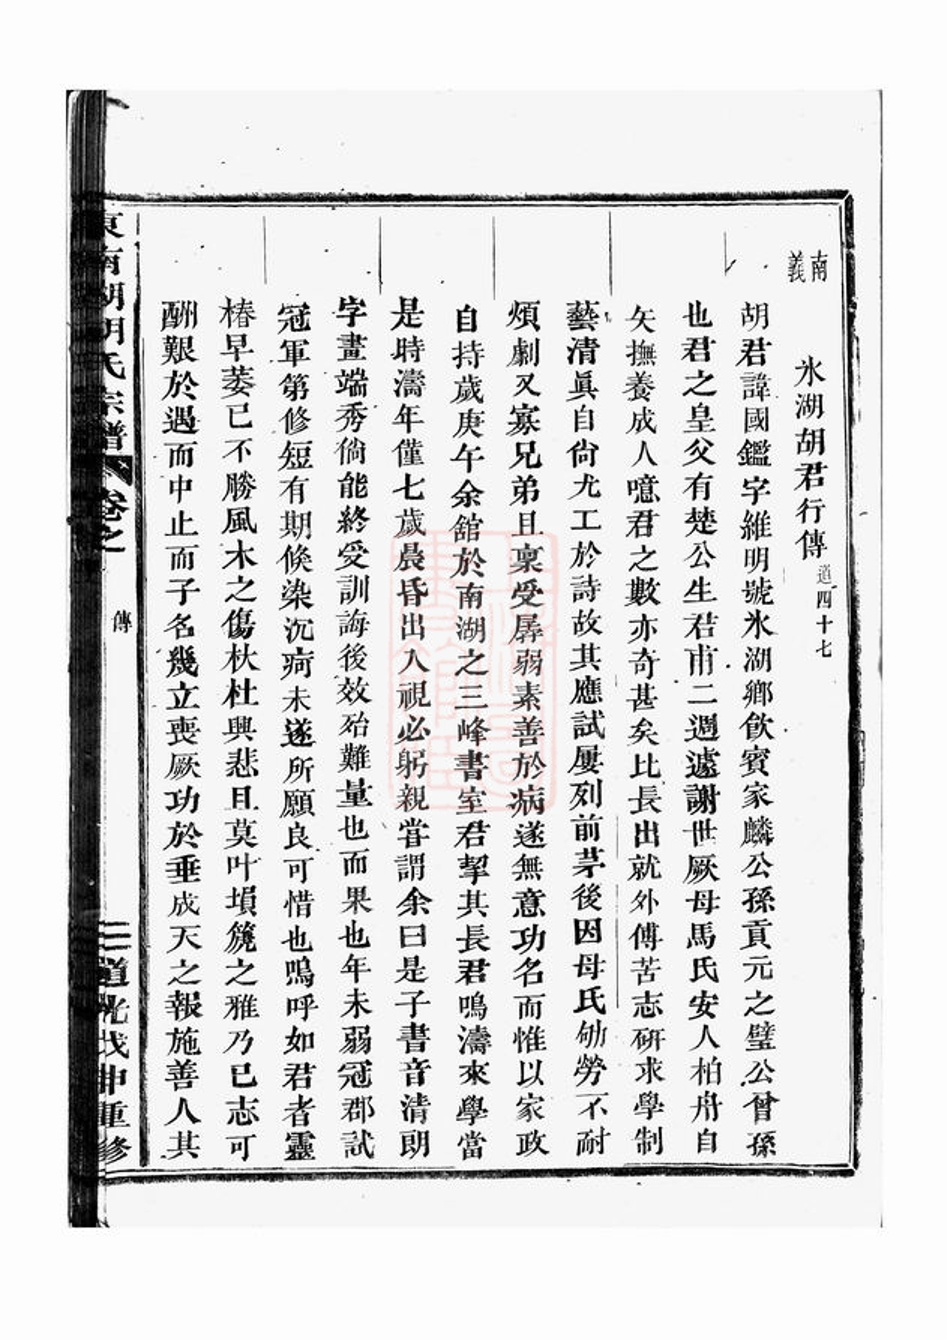 南義
氷湖胡君行傳道四十七
胡君諱國鑑字維明號氷湖鄉飲賓家麟公孫貢元之璧公曾孫
也君之皇父有楚公生君甫二週遽謝世厥母馬氏安人柏舟自
矢撫養成人噫君之數亦奇甚矣比長出就外傅苦志硏求學制
藝清眞自尙尤工於詩故其應試屢列前茅後因母氏劬勞不耐
煩劇又寡兄弟且稟受孱弱素善於病遂無意功名而惟以家政
自持歲庚午余舘於南湖之三峰書室君挈其長君鳴濤來學當
是時濤年僅七歲晨昏出入視必躬親嘗謂余曰是子書音清朗
字畫端秀倘能終受訓誨後效殆難量也而果也年未弱冠郡試
冠軍第修短有期倐染沉疴未遂所願良可惜也嗚呼如君者靈
椿早萎已不勝風木之傷杕杜興悲且莫叶塤篪之雅乃已志可
酬艱於遇而中止而子名幾立喪厥功於垂成天之報施善人其
東南湖胡氏宗譜 卷之 傳 三 道光戊申重修